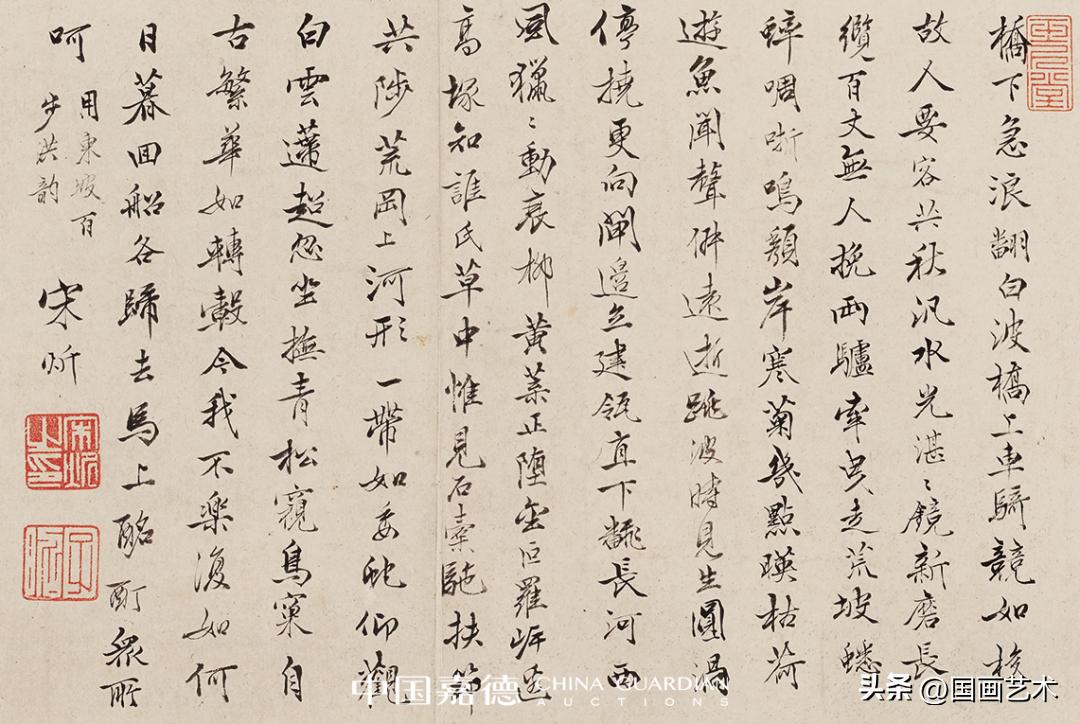 橋下急浪翻白波橋上車騎競如梭
故人要容共秋汎水光湛〻鏡新磨長
纜百丈無人挽兩驢牽曳走荒坡蟋
蟀啁哳鳴頽岸寒菊幾點暎枯荷
遊魚聞聲僻遠逝跳波時見生圓渦
停橈更向閘邊立建瓴直下翻長河西
風獵〻動衰柳黃葉正墮金叵羅
高塚知誰氏草中惟見石橐駞扶筇
共陟荒岡上河形一帶如委蛇仰觀
白雲蘧超忽坐撫青松窺鳥窠自
古繁華如轉轂今我不樂復如何
日暮回船各歸去馬上酩酊衆所
呵
用東坡百
步洪韵
宋炘
中国嘉德 CHINA GUARDIAN
AUCTIONS
头条 @国画艺术